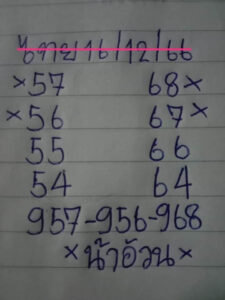 นาย 16/12/66
×57 68×
×56 67×
55 66
54 64
957-956-968
×น้าอ้วน×